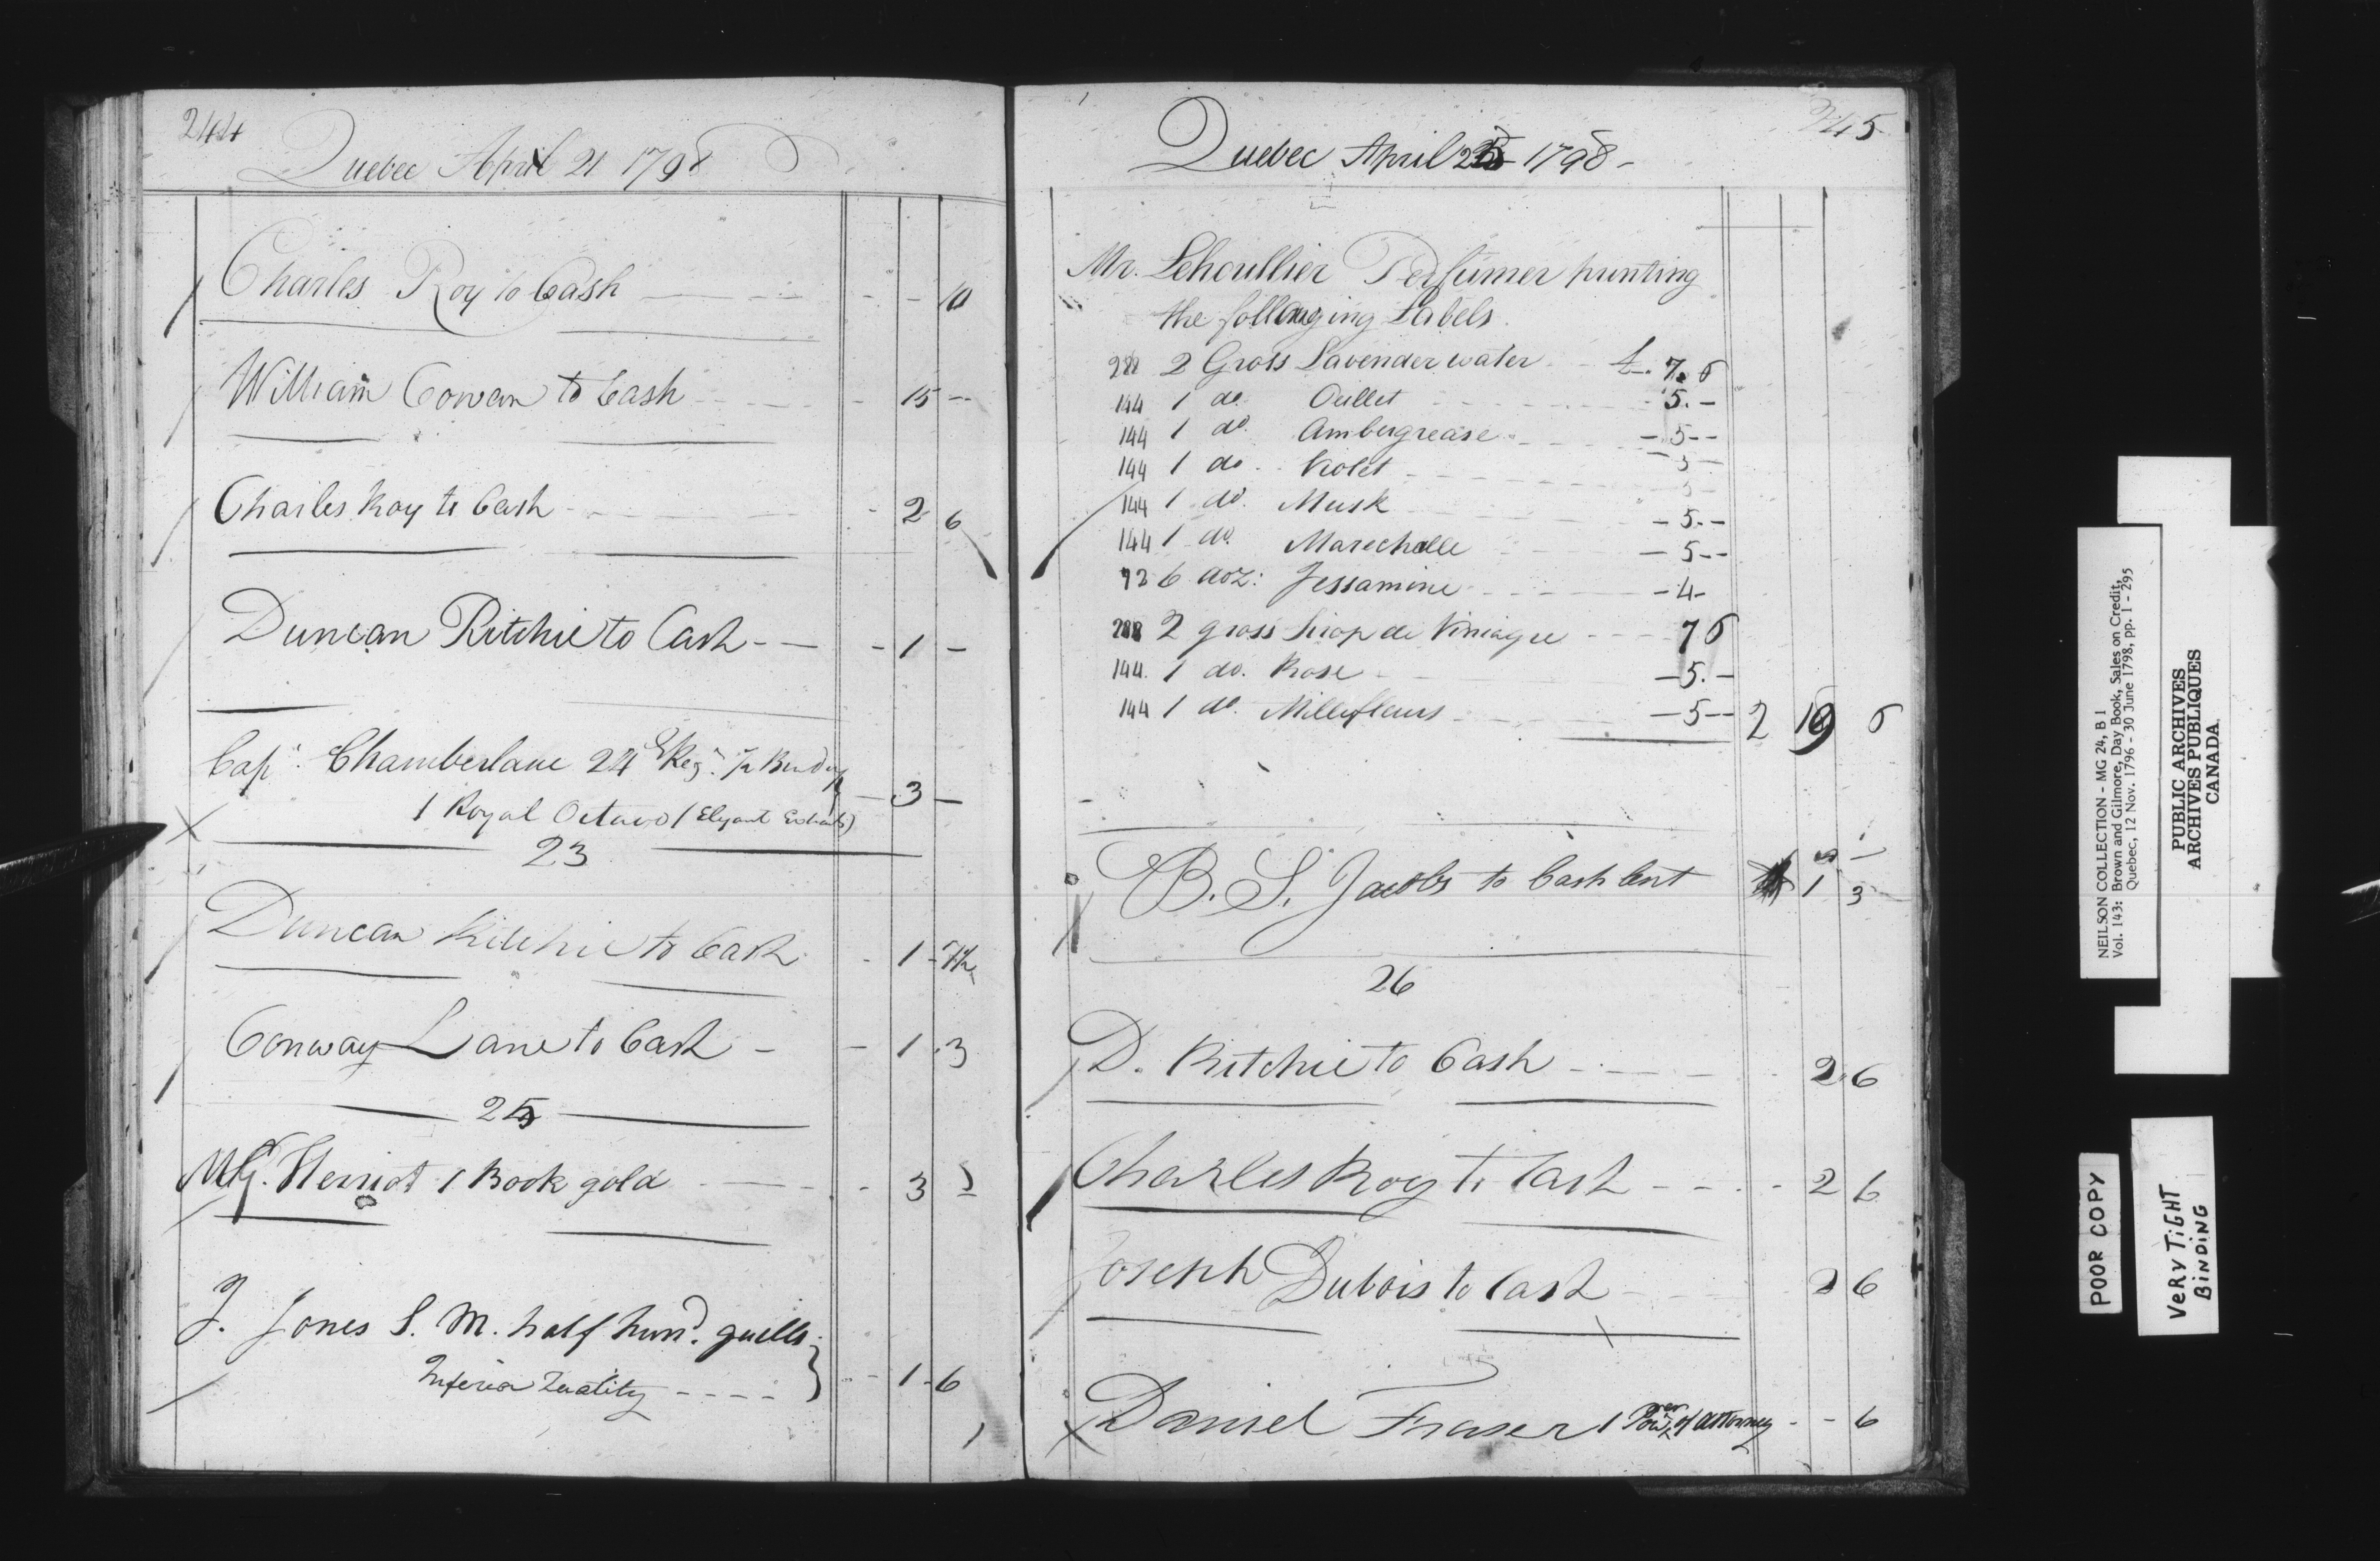 244
Quebec April 21 1798
Charles Roy to Cash - - 10
William Cowan to Cash - 15 -
Charles Roy to Cash - 2 6
Duncan Ritchie to Cash - 1 -
Capt. Chamberlane 24th Regt. for Binding
1 Royal Octavo (Elegant Extracts) - 3 -
23
Duncan Ritchie to Cash - 1 - 7½
Conway Lane to Cash - 1 . 3
25
Herriot 1 Book gold - 3
J. Jones S. M. half hund. quills
Inferior Quality - - - - 1 - 6
245
Quebec April 1798 -
Mr. Lehoullier Perfumer printing
the following Labels.
288 2 Gross Lavender water £. 7. 6
144 1 do. Oeillet 5. -
144 1 do. Ambergrease - 5 - -
144 1 do. Violet 5 -
144 1 do. Musk - 5. -
144 1 do. Marechalle - 5 - -
72 6 doz: Jessamine - 4 -
288 2 gross Sirop de Viniagre 7 6
144. 1 do. Rose - 5. -
144 1 do. Millefleurs - 5 - - 2 19 6
B. S. Jacobs to Cash lent 1 3
26
D. Ritchie to Cash 2 6
Charles Roy to Cash - - - - 2 6
Joseph Dubois to Cash 2 6
Daniel Fraser 1 Power of Attorney - - 6
NEILSON COLLECTION - MG 24, B 1
Vol. 143: Brown and Gilmore, Day Book, Sales on Credit,
Quebec, 12 Nov. 1796 - 30 June 1798, pp. 1 - 295
PUBLIC ARCHIVES
ARCHIVES PUBLIQUES
CANADA
POOR COPY
VERY TIGHT
BINDING